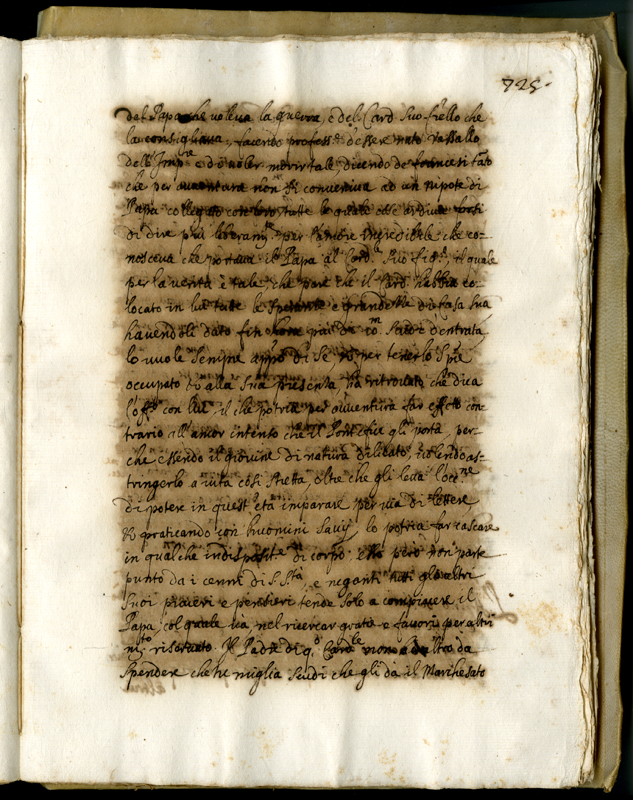 725.
del Papa che voleva la guerra, e del Card. suo f'rello che
la consigliava, facendo profess.e d'essere nato vassallo
dell'Imp.re e di voler morir tale, dicendo de francesi
che per avventura non si conveniva ad un nipote di
Papa collegato con loro, tutte le quali cose
di dire più liberam.te per l'amore incredibile che co-
nosceva che portava il Papa al Card. suo fig.o, il quale
per la verità è tale, che pare che il Card. habbia co-
locato in lui tutte le speranze e grandezza di casa sua
havendoli dato fin di m. scudi d'entrata,
lo vuole sempre app.o di se, et per tenerlo più
occupato alla sua presenza, ha ritrovato che dica
l'off.o con lui, il che potria per avventura far effetto con-
trario all'amor intento che il Pontefice gli porta, per-
che essendo il giovine di natura dilicato, volendo as-
tringerlo a vita così stretta, oltre che gli leva l'occ.ne
di potere in quest'età imparare per via di lettere
et praticando con huomini savij, lo potria far cascare
in qualche indisposit.e di corpo, esso però non parte
punto da i cenni di S. S.tà, e neganti tutti gli altri
suoi piaceri e pensieri tende solo a compiacere il
Papa, col quale va nel ricercar gratie e favori per altri
m.to riservato. Il Padre di q.o Card.le non ha altro da
spendere che tre miglia scudi che gli dà il Marchesato